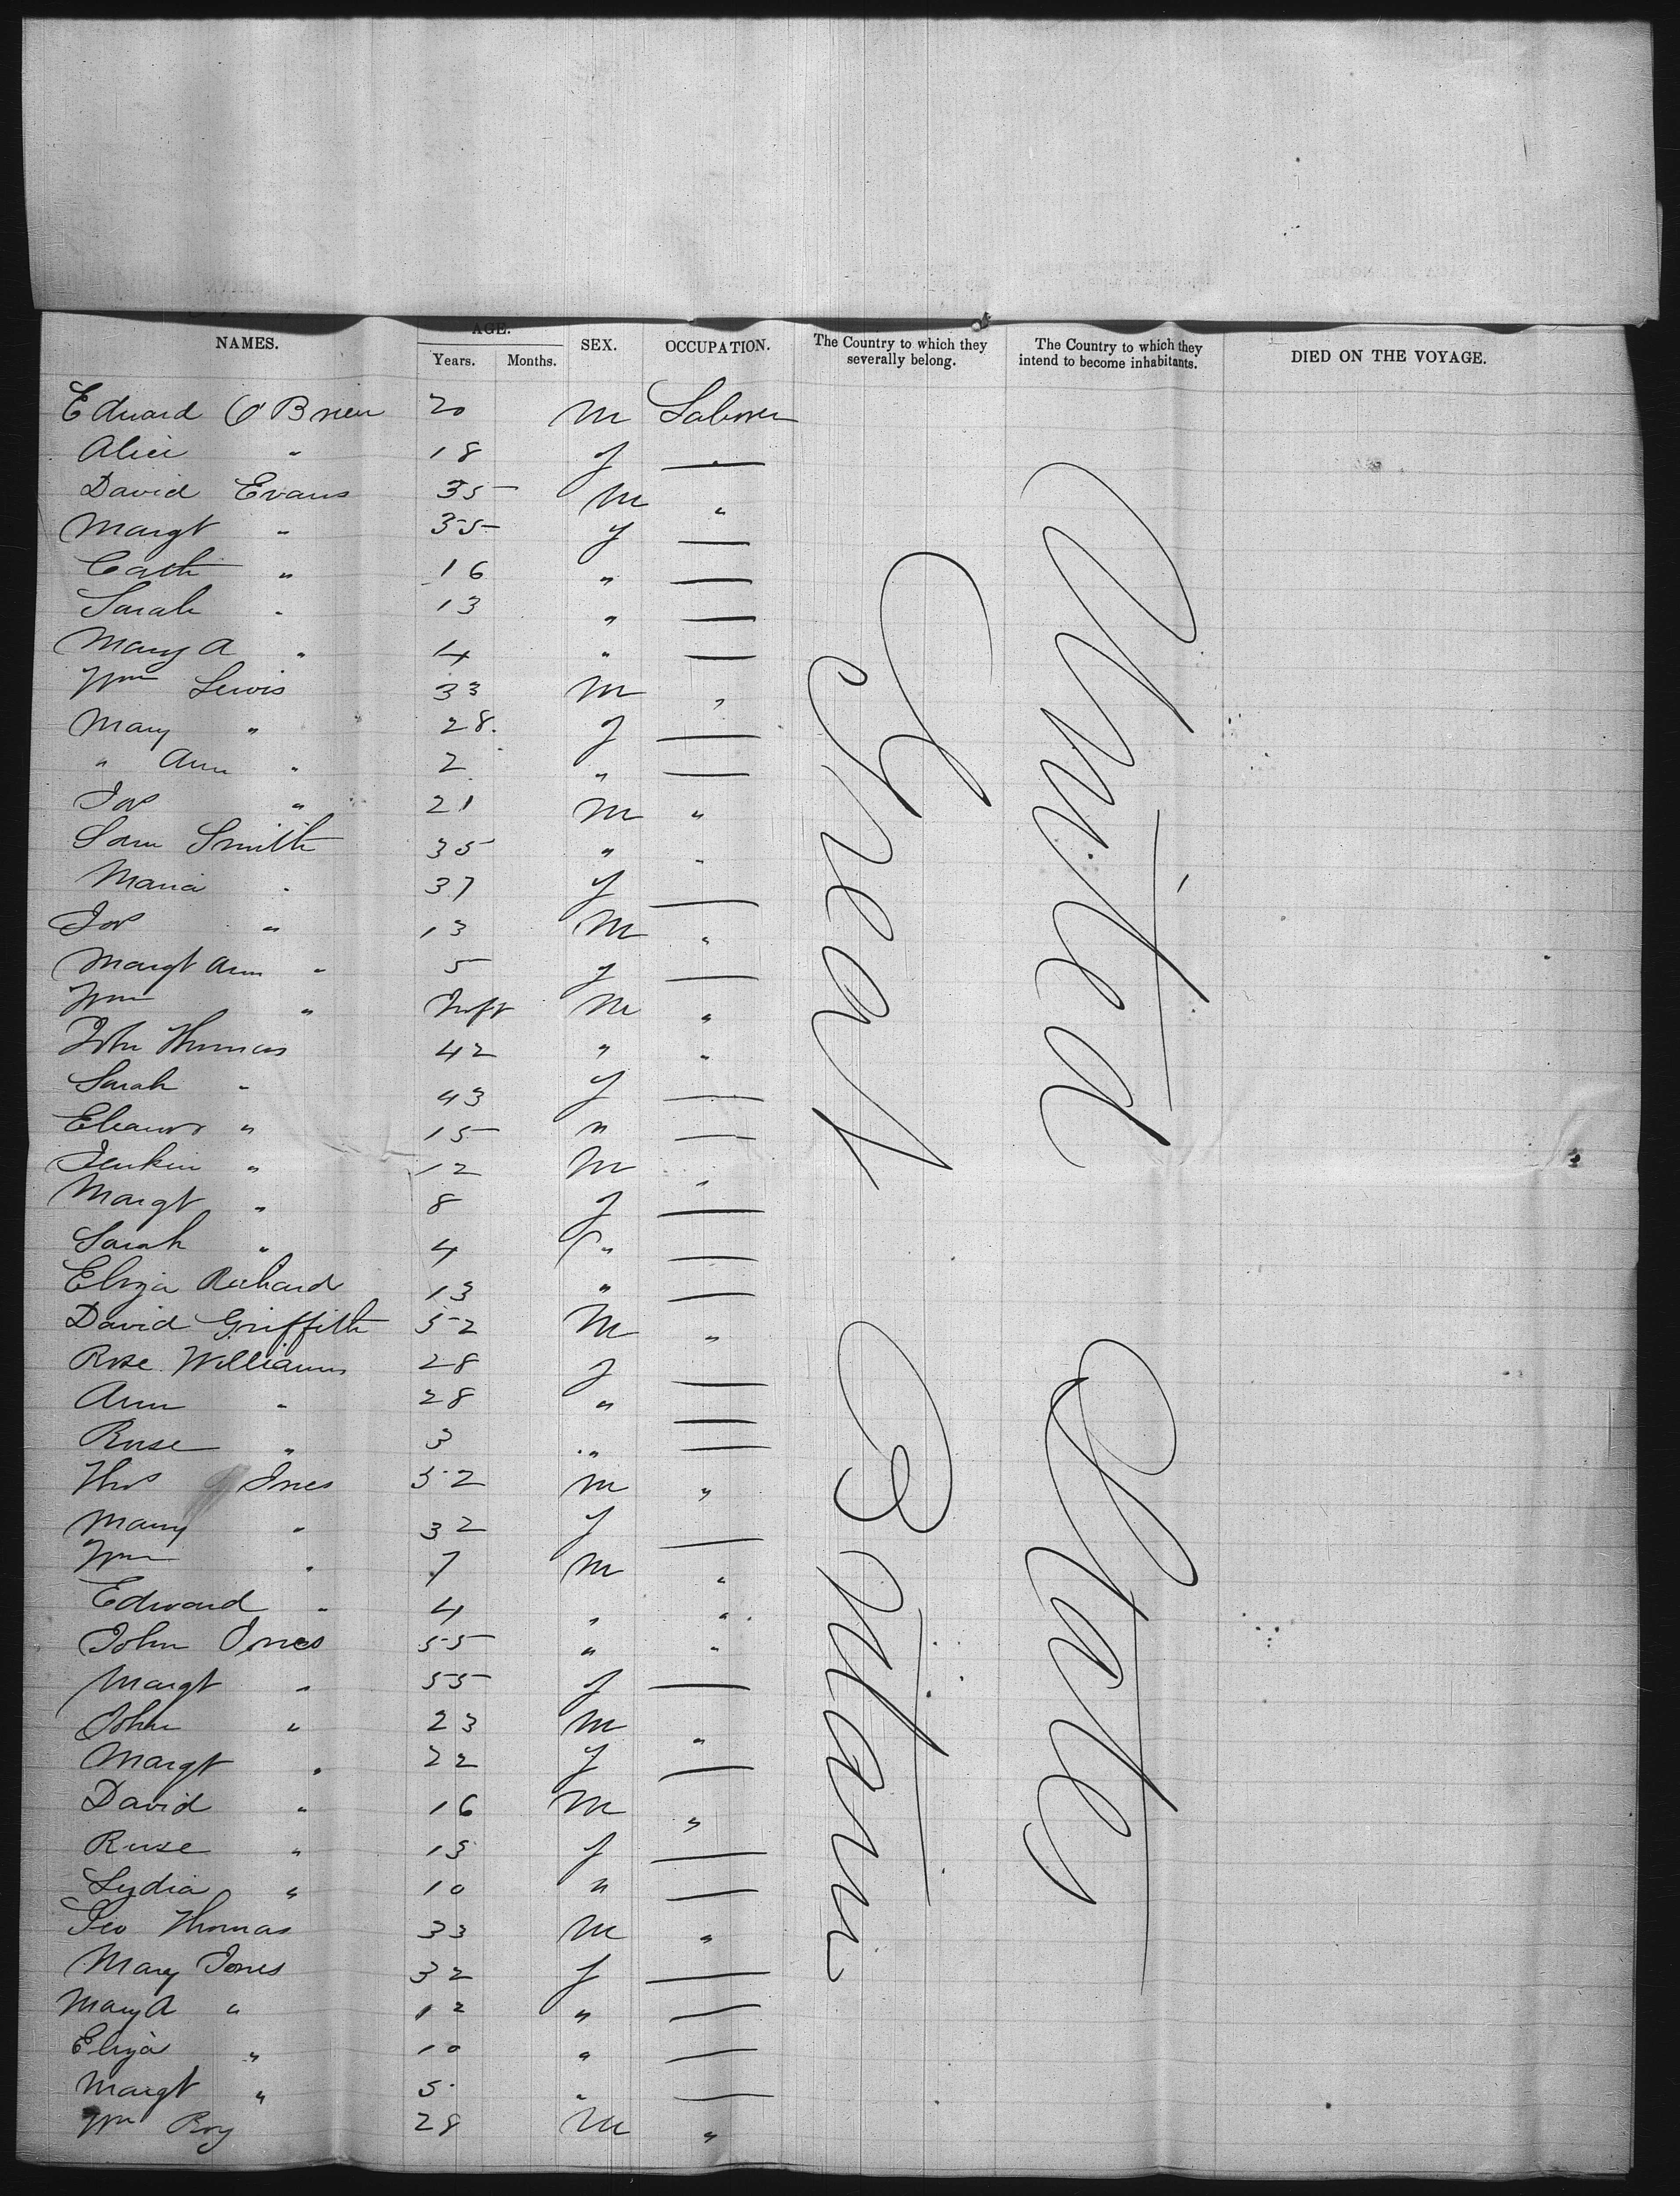 AGE.
NAMES. Years. Months. SEX. OCCUPATION. The Country to which they severally belong. The Country to which they intend to become inhabitants. DIED ON THE VOYAGE.
Edward O'Brien 20 m Laborer
Alice " 18 f —
David Evans 35 m "
Margt " 35 f —
Cath " 16 " —
Sarah " 13 " —
Mary A " 4 " —
Wm Lewis 33 m "
Mary " 28. f —
" Ann " 2 " —
Jos " 21 m "
Sam Smith 35 " "
Maria " 37 f —
Jos " 13 m "
Margt Ann " 5 f —
Wm " Inft m "
John Thomas 42 " "
Sarah " 43 f —
Eleanor " 15 " —
Jenkin " 12 m "
Margt " 8 f —
Sarah " 4 " —
Eliza Richard 13 " —
David Griffith 52 m "
Rose Williams 28 f —
Ann " 28 " —
Rose " 3 " —
Thos Jones 52 m "
Mary " 32 f —
Wm " 7 m "
Edward " 4 " "
John Jones 55 " "
Margt " 55 f —
John " 23 m "
Margt " 22 f —
David " 16 m "
Rose " 15 f —
Lydia " 10 " —
Geo Thomas 33 m "
Mary Jones 32 f —
Mary A " 12 " —
Eliza " 10 " —
Margt " 5 " —
Wm Roy 28 m "
Great Britain
United States